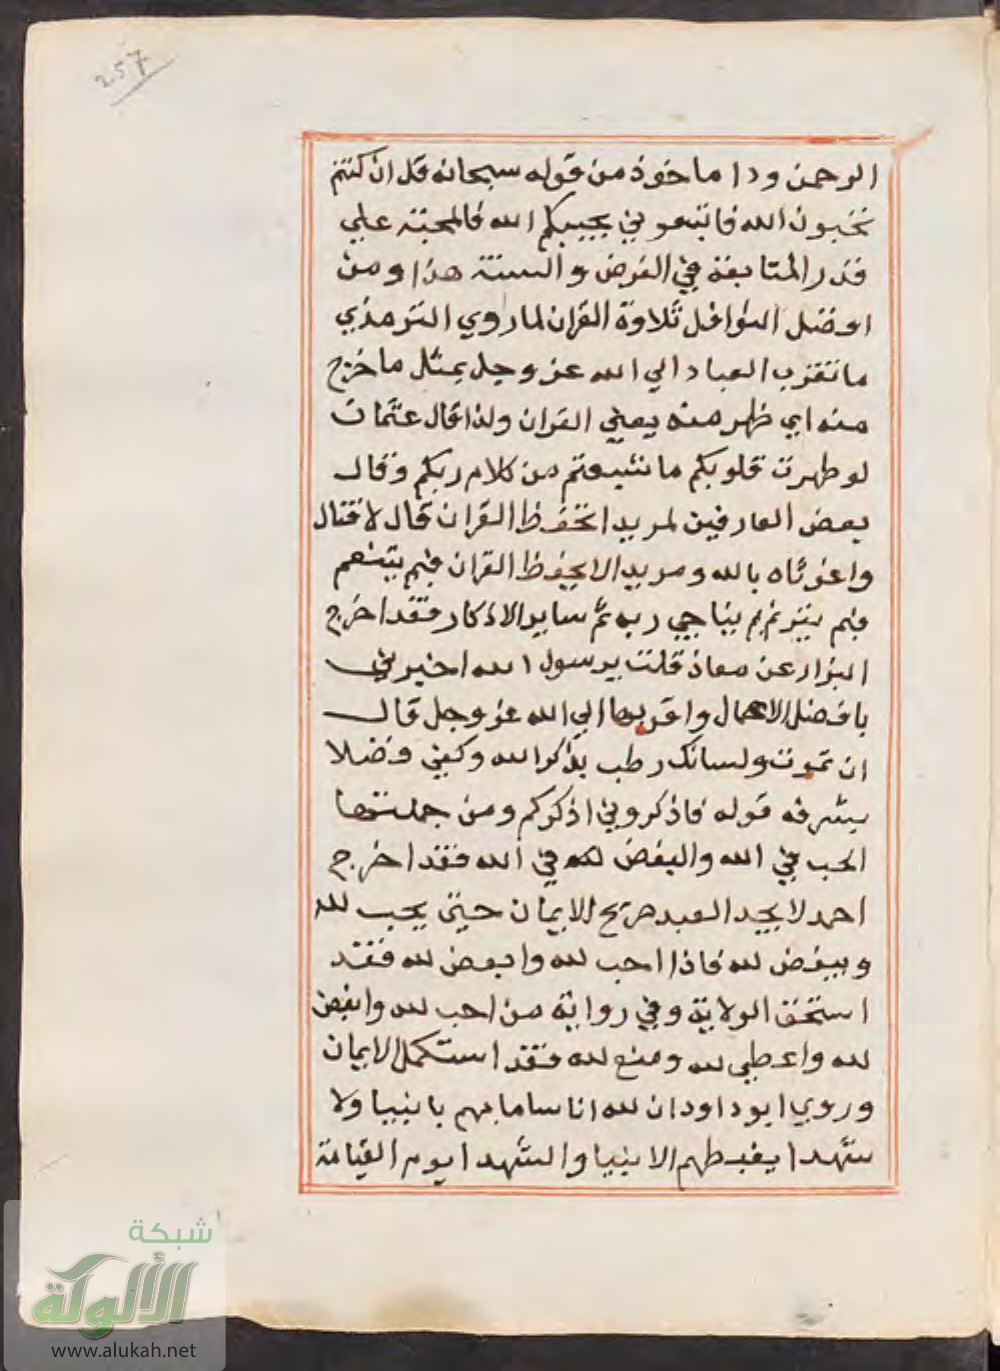 257
الرحمن ودا ماخوذ من قوله سبحانه قل ان كنتم
تحبون الله فاتبعوني يحببكم الله فالمحبة علي
قدر المتابعة في الفرض والسنة هذا ومن
افضل النوافل تلاوة القران لما روي الترمذي
ما تقرب العباد الي الله عز وجل بمثل ما خرج
منه اي ظهر منه يعني القران ولذا قال عثمان
لو طهرت قلوبكم ما شبعتم من كلام ربكم وقال
بعض العارفين لمريد اتحفظ القران قال لا فقال
واغوثاه بالله ومريد لا يحفظ القران فبم يتنعم
فبم يترنم بم يناجي ربه ثم ساير الاذكار فقد اخرج
البزار عن معاذ قلت يرسول الله اخبرني
بافضل الاعمال واقربها الي الله عز وجل قال
ان تموت ولسانك رطب بذكر الله وكفي فضلا
بشرفه قوله فاذكروني اذكركم ومن جملتها
الحب في الله والبغض في الله فقد اخرج
احمد لا يجد العبد صريح الايمان حتي يحب لله
ويبغض لله فاذا احب لله وابغض لله فقد
استحق الولاية وفي رواية من احب لله وابغض
لله واعطي لله ومنع لله فقد استكمل الايمان
وروي ابو داود ان لله اناسا ما هم بانبيا ولا
شهدا يغبطهم الانبيا والشهدا يوم القيامة
شبكة
الألوكة
www.alukah.net